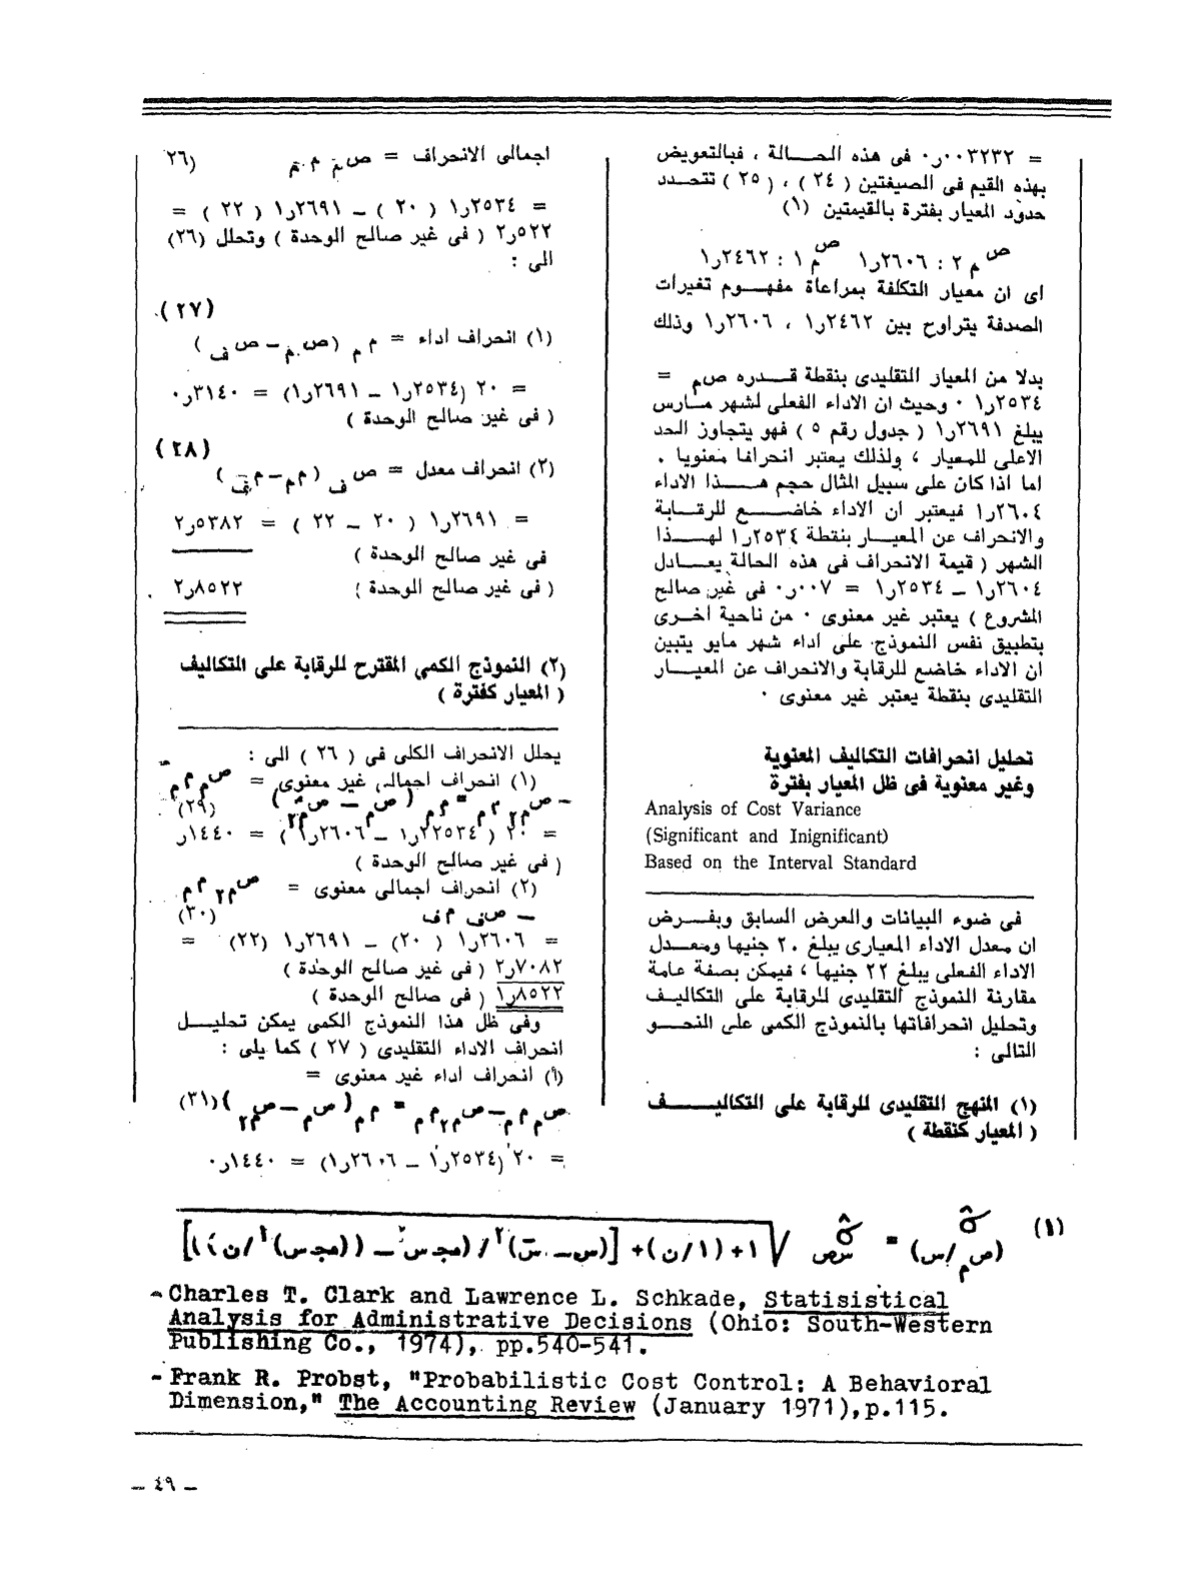 = ٠٠٣٢٣٢ر٠ فى هذه الحـــالة ، فبالتعويض
بهذه القيم فى الصيغتين ( ٢٤ ) ، ( ٢٥ ) تتحـــدد
حدود المعيار بفترة بالقيمتين (١)
ص م ٢ : ٢٦٠٦ر١ ص م ١ : ٢٤٦٢ر١
اى ان معيار التكلفة بمراعاة مفهـــوم تغيرات
الصدفة يتراوح بين ٢٤٦٢ر١ ، ٢٦٠٦ر١ وذلك
بدلا من المعيار التقليدى بنقطة قـــدره ص م =
٢٥٣٤ر١ ٠ وحيث ان الاداء الفعلى لشهر مـارس
يبلغ ٢٦٩١ر١ ( جدول رقم ٥ ) فهو يتجاوز الحد
الاعلى للمعيار ، ولذلك يعتبر انحرافا معنويا .
اما اذا كان على سبيل المثال حجم هـــذا الاداء
٢٦٠٤ر١ فيعتبر ان الاداء خاضـــع للرقـابة
والانحراف عن المعيـــار بنقطة ٢٥٣٤ر١ لهـــذا
الشهر ( قيمة الانحراف فى هذه الحالة يعـــادل
٢٦٠٤ر١ ــ ٢٥٣٤ر١ = ٠٠٧ر٠ فى غير صالح
المشروع ) يعتبر غير معنوى ٠ من ناحية أخـرى
بتطبيق نفس النموذج على اداء شهر مايو يتبين
ان الاداء خاضع للرقابة والانحراف عن المعيـــار
التقليدى بنقطة يعتبر غير معنوى ٠
تحليل انحرافات التكاليف المعنوية
وغير معنوية فى ظل المعيار بفترة
Analysis of Cost Variance
(Significant and Inignificant)
Based on the Interval Standard
فى ضوء البيانات والعرض السابق وبفـــرض
ان معدل الاداء المعيارى يبلغ ٢٠ جنيها ومعـــدل
الاداء الفعلى يبلغ ٢٢ جنيها ، فيمكن بصفة عامة
مقارنة النموذج التقليدى للرقابة على التكاليـــف
وتحليل انحرافاتها بالنموذج الكمى على النحـــو
التالى :
(١) المنهج التقليدى للرقابة على التكاليـــــف
( المعيار كنقطة )
اجمالى الانحراف = (٢٦
= ٢٥٣٤ر١ ( ٢٠ ) ــ ٢٦٩١ر١ ( ٢٢ ) =
٥٢٢ر٢ ( فى غير صالح الوحدة ) وتحلل (٢٦)
الى :
(٢٧)
(١) انحراف اداء = م م (ص م ــ ص ف )
= ٢٠ (٢٥٣٤ر١ ــ ٢٦٩١ر١) = ٣١٤٠ر٠
( فى غير صالح الوحدة )
(٢٨)
(٢) انحراف معدل = ص ف (م م ــ م ف )
= ٢٦٩١ر١ ( ٢٠ ــ ٢٢ ) = ٥٣٨٢ر٢
فى غير صالح الوحدة )
( فى غير صالح الوحدة ) ٨٥٢٢ر٢
(٢) النموذج الكمى المقترح للرقابة على التكاليف
( المعيار كفترة )
يحلل الانحراف الكلى فى ( ٢٦ ) الى :
(١) انحراف اجمالى غير معنوى = ص م م م
ــ ص م٢ م م = م م ( ص م ــ ص م٢ ) (٢٩)
= ٢٠ ( ٢٥٣٤ر١ ــ ٢٦٠٦ر١ ) = ١٤٤٠ر
( فى غير صالح الوحدة )
(٢) انحراف اجمالى معنوى = ص م٢ م م
ــ ص ف م ف (٣٠)
= ٢٦٠٦ر١ ( ٢٠) ــ ٢٦٩١ر١ (٢٢) =
٧٠٨٢ر٢ ( فى غير صالح الوحدة )
٨٥٢٢ر١ ( فى صالح الوحدة )
وفى ظل هذا النموذج الكمى يمكن تحليـــل
انحراف الاداء التقليدى ( ٢٧ ) كما يلى :
(أ) انحراف اداء غير معنوى =
ص م م م ــ ص م٢ م م = م م ( ص م ــ ص م٢ ) (٣١)
= ٢٠ (٢٥٣٤ر١ ــ ٢٦٠٦ر١) = ١٤٤٠ر٠
(١) σ̂ (ص م/س) = σ̂ سص √ ١+(١/ن)+[(س ــ س̄)٢/(مجس٢ ــ ((مجس)٢/ن))]
- Charles T. Clark and Lawrence L. Schkade, Statisistical
Analysis for Administrative Decisions (Ohio: South-Western
Publishing Co., 1974), pp.540-541.
- Frank R. Probst, "Probabilistic Cost Control: A Behavioral
Dimension," The Accounting Review (January 1971),p.115.
ــ ٤٩ ــ